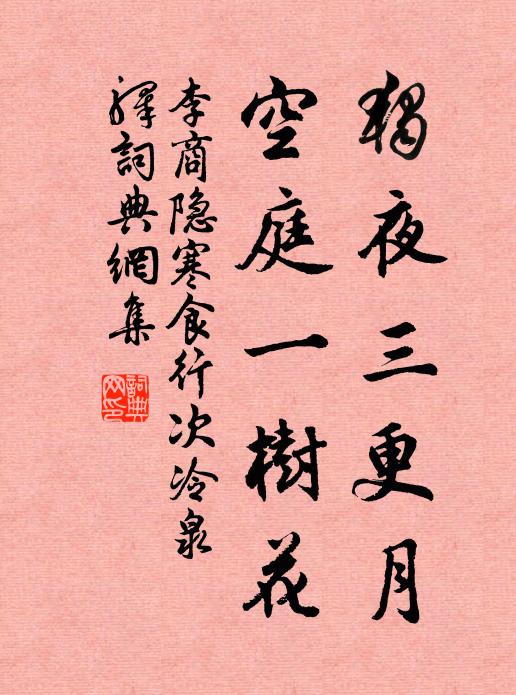 獨夜三更月
空庭一樹花
李商隐寒食行次冷泉
驛詞典網集
詞典
网印